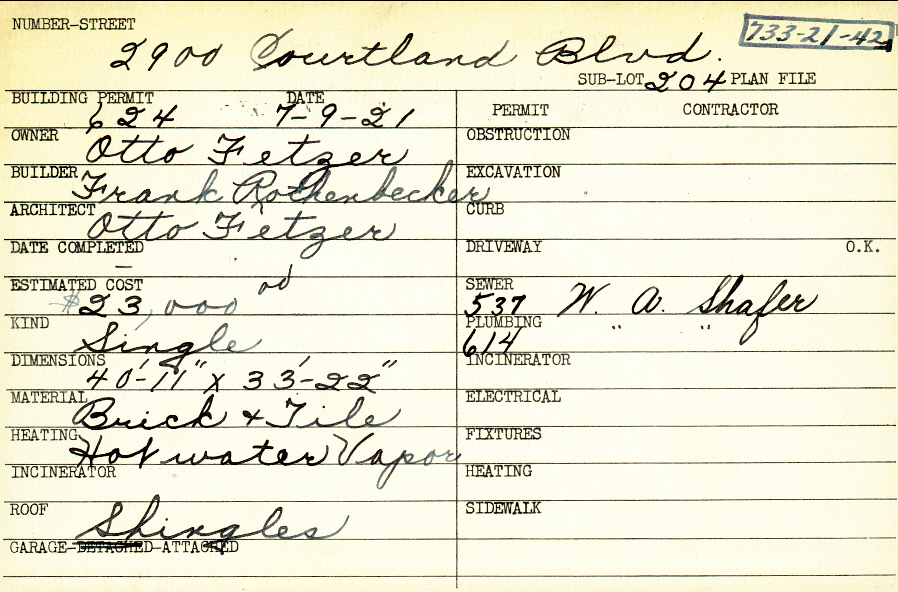 NUMBER-STREET
733-21-42
2900 Courtland Blvd.
SUB-LOT 204 PLAN FILE
BUILDING PERMIT DATE
624 7-9-21
OWNER
Otto Fetzer
BUILDER
Frank Rothenbecker
ARCHITECT
Otto Fetzer
DATE COMPLETED
—
ESTIMATED COST
$23,000 00
KIND
Single
DIMENSIONS
40'-11" x 33'-22"
MATERIAL
Brick + Tile
HEATING
Hot water Vapor
INCINERATOR
ROOF
Shingles
GARAGE-DETACHED-ATTACHED
PERMIT CONTRACTOR
OBSTRUCTION
EXCAVATION
CURB
DRIVEWAY O.K.
SEWER
537 W. A. Shafer
PLUMBING
614 " "
INCINERATOR
ELECTRICAL
FIXTURES
HEATING
SIDEWALK